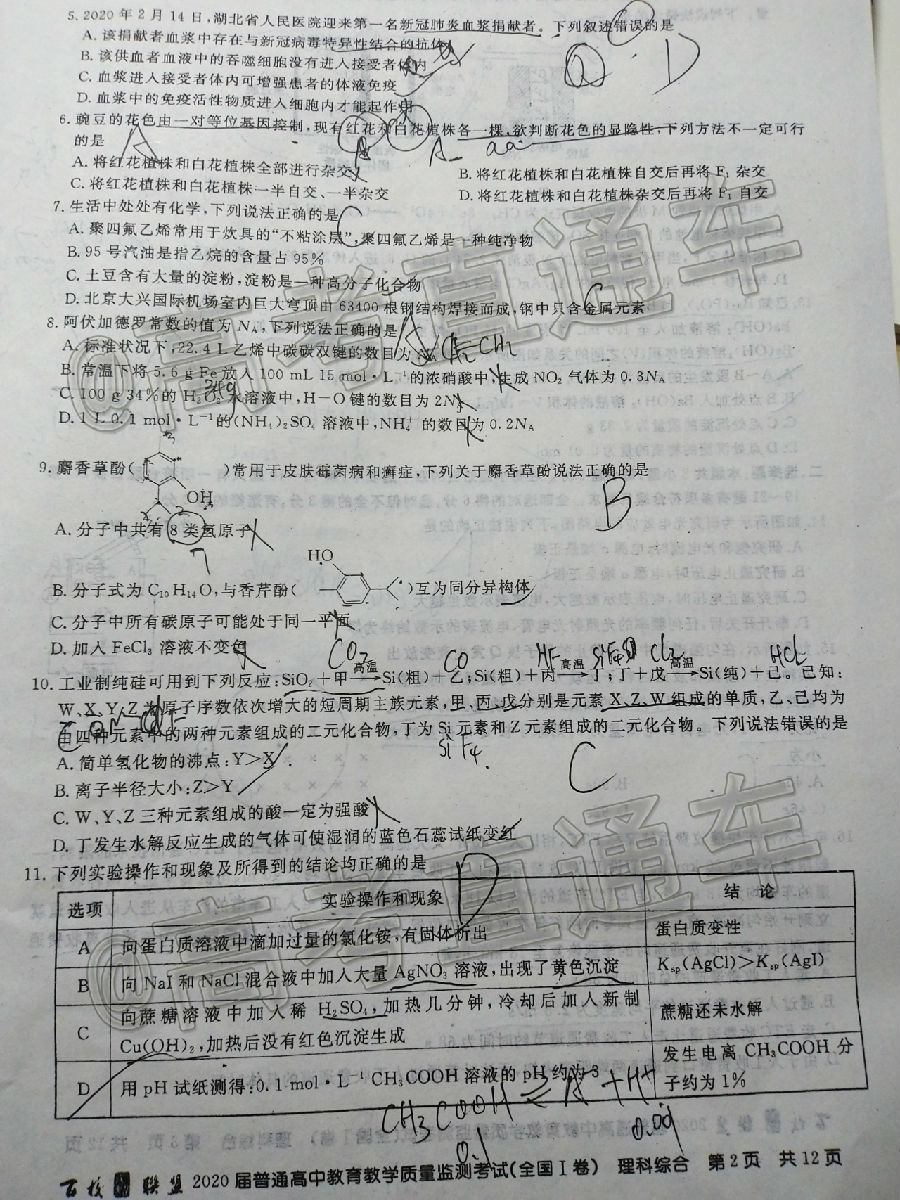 5.2020年2月14日,湖北省人民医院迎来第一名新冠肺炎血浆捐献者。下列叙述错误的是
A.该捐献者血浆中存在与新冠病毒特异性结合的抗体
B.该供血者血液中的吞噬细胞没有进入接受者体内
C.血浆进入接受者体内可增强患者的体液免疫
D.血浆中的免疫活性物质进入细胞内才能起作用
6.豌豆的花色由一对等位基因控制,现有红花和白花植株各一棵,欲判断花色的显隐性,下列方法不一定可行
的是
A.将红花植株和白花植株全部进行杂交
B.将红花植株和白花植株自交后再将F₁杂交
C.将红花植株和白花植株一半自交、一半杂交
D.将红花植株和白花植株杂交后再将F₁自交
7.生活中处处有化学,下列说法正确的是
A.聚四氟乙烯常用于炊具的“不粘涂层”,聚四氟乙烯是一种纯净物
B.95号汽油是指乙烷的含量占95%
C.土豆含有大量的淀粉,淀粉是一种高分子化合物
D.北京大兴国际机场室内巨大穹顶由63400根钢结构焊接而成,钢中只含金属元素
C
8.阿伏加德罗常数的值为N_A,下列说法正确的是
A
A.标准状况下,22.4L乙烯中碳碳双键的数目为
B.常温下将5.6gFe放入100mL 15mol·L⁻¹的浓硝酸中,生成NO₂气体为0.3N_A
C.100g34%的H₂O₂水溶液中,H—O键的数目为2N_A
34g
D.1L0.1mol·L⁻¹的(NH₄)₂SO₄溶液中,NH₄⁺的数目为0.2N_A
9.麝香草酚( )常用于皮肤霉菌病和癣症,下列关于麝香草酚说法正确的是
OH
B
A.分子中共有8类氢原子
7
HO
B.分子式为C₁₀H₁₄O,与香芹酚( )互为同分异构体
C.分子中所有碳原子可能处于同一平面
D.加入FeCl₃溶液不变色
CO₂ CO HF SiF₄ Cl₂ HCl
10.工业制纯硅可用到下列反应:SiO₂+甲—高温→Si(粗)+乙;Si(粗)+丙—高温→丁;丁+戊—高温→Si(纯)+己。已知:
W、X、Y、Z为原子序数依次增大的短周期主族元素,甲、丙、戊分别是元素X、Z、W组成的单质,乙、己均为
百四种元素中的两种元素组成的二元化合物,丁为Si元素和Z元素组成的二元化合物。下列说法错误的是
SiF₄
A.简单氢化物的沸点:Y>X
C
B.离子半径大小:Z>Y
C.W、Y、Z三种元素组成的酸一定为强酸
D.丁发生水解反应生成的气体可使湿润的蓝色石蕊试纸变红
11.下列实验操作和现象及所得到的结论均正确的是
D
选项 实验操作和现象 结论
A 向蛋白质溶液中滴加过量的氯化铵,有固体析出 蛋白质变性
B 向NaI和NaCl混合液中加入大量AgNO₃溶液,出现了黄色沉淀 Ksp(AgCl)>Ksp(AgI)
C 向蔗糖溶液中加入稀H₂SO₄,加热几分钟,冷却后加入新制
Cu(OH)₂,加热后没有红色沉淀生成 蔗糖还未水解
D 用pH试纸测得:0.1mol·L⁻¹CH₃COOH溶液的pH约为3 发生电离CH₃COOH分
子约为1%
CH₃COOH⇌A⁻+H⁺
0.1
百校联盟 2020届普通高中教育教学质量监测考试(全国Ⅰ卷) 理科综合 第2页 共12页
@高考直通车
@高考直通车